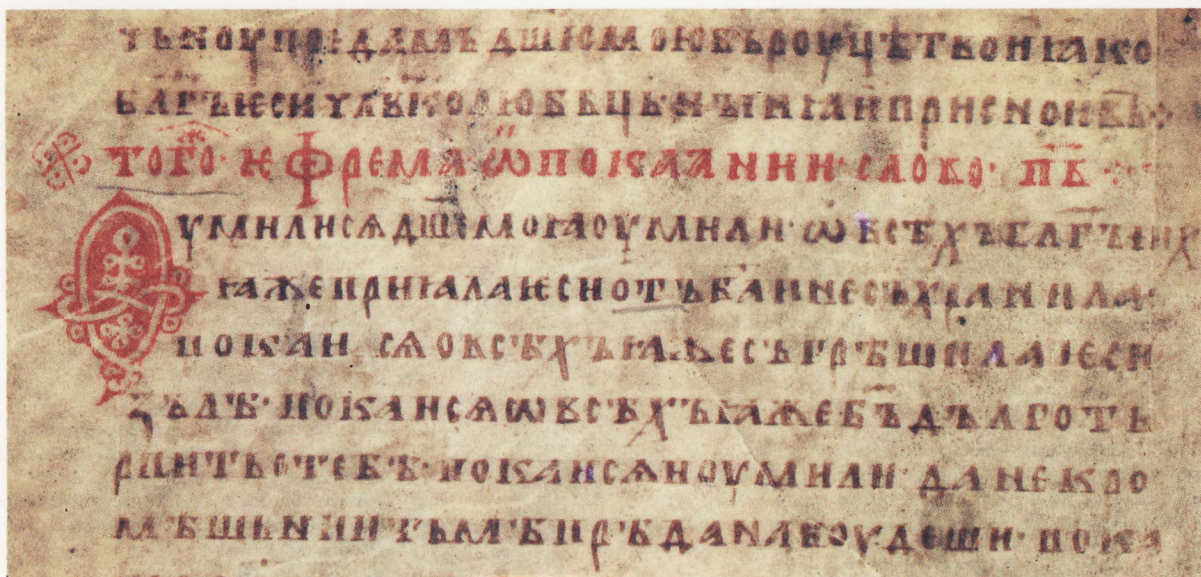 тьноу предамъ дш҃ю мою въ роуцѣ твои ꙗко
бл҃гъ ѥси чл҃вколюбьць и нынꙗ и присно и въ
того· ѥфрема ѿ покаꙗнии слово· п҃в
оумилисѧ дш҃е моꙗ оумили· ѡ всѣхъ бл҃гъıих
ꙗже приꙗла ѥси отъ б҃а и не съхранила·
покаи сѧ о всѣхъ ꙗже съгрѣшила ѥси
зълѣ· покаисѧ ѡ всѣхъ ꙗже б҃ъ дълготь
рпить о тебѣ· покаисѧ и оумили· да не кро
мѣшьнии тьмѣ прѣдана боудеши· пока